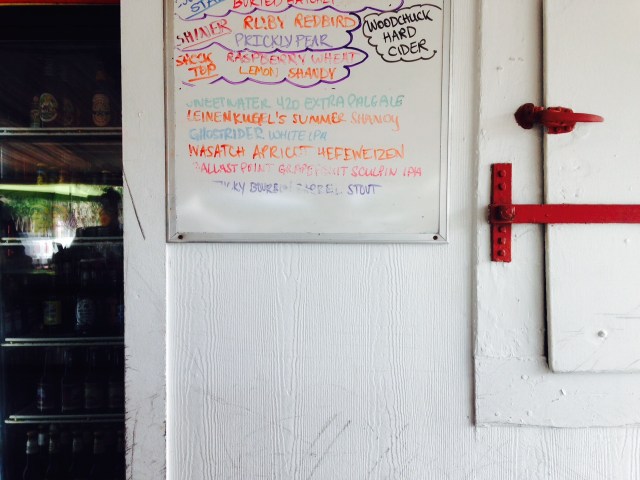 STAR BURIED HATCHET
SHINER RUBY REDBIRD
PRICKLY PEAR
WOODCHUCK
HARD
CIDER
SHOCK RASPBERRY WHEAT
TOP LEMON SHANDY
SWEETWATER 420 EXTRA PALE ALE
LEINENKUGEL'S SUMMER SHANDY
GHOSTRIDER WHITE IPA
WASATCH APRICOT HEFEWEIZEN
BALLAST POINT GRAPEFRUIT SCULPIN IPA
BOURBON BARREL STOUT